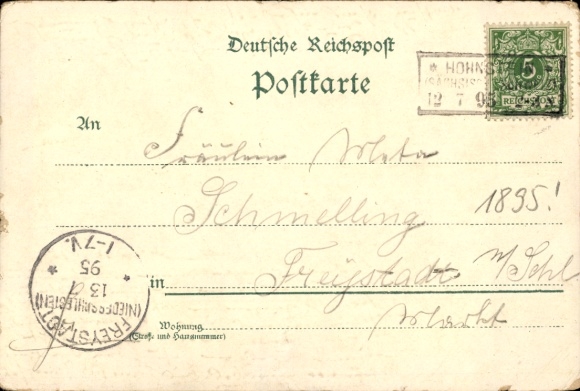 Deutsche Reichspost
Postkarte
5
REICHSPOST
* HOHNST
12 7 95
An
Fräulein Meta
Schmelling
1895!
in Freystadt N/Schl
Markt
Wohnung
(Straße und Hausnummer)
FREYSTADT
(NIEDERSCHLESIEN)
13 7
95
1-7V.